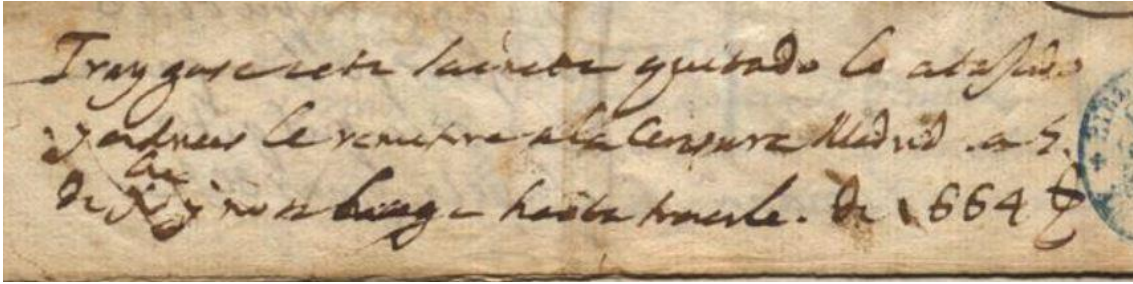 Traygase este sainete quitado lo atajado
y despues se remitire a la Censura Madrid a 5.
de y no se haga hasta traerle. de 1664